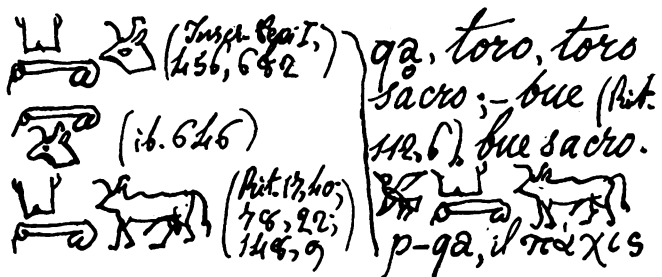 (Inscr. Pepi I,
456, 682
(ib. 646)
(Rit. 17, 40;
78, 22;
148, 9)
qa, toro, toro
sacro; – bue (Rit.
112, 6), bue sacro.
p-qa, il πάχις